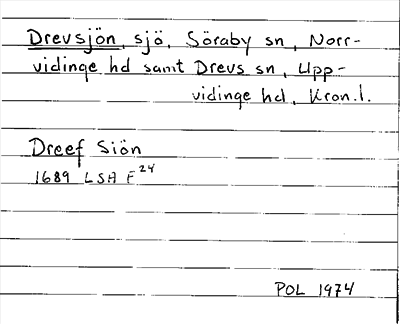 Drevsjön, sjö, Söraby sn, Norr-
vidinge hd samt Drevs sn, Upp-
vidinge hd, Kron.l.
Dreef Siön
1689 LSA F 24
POL 1974